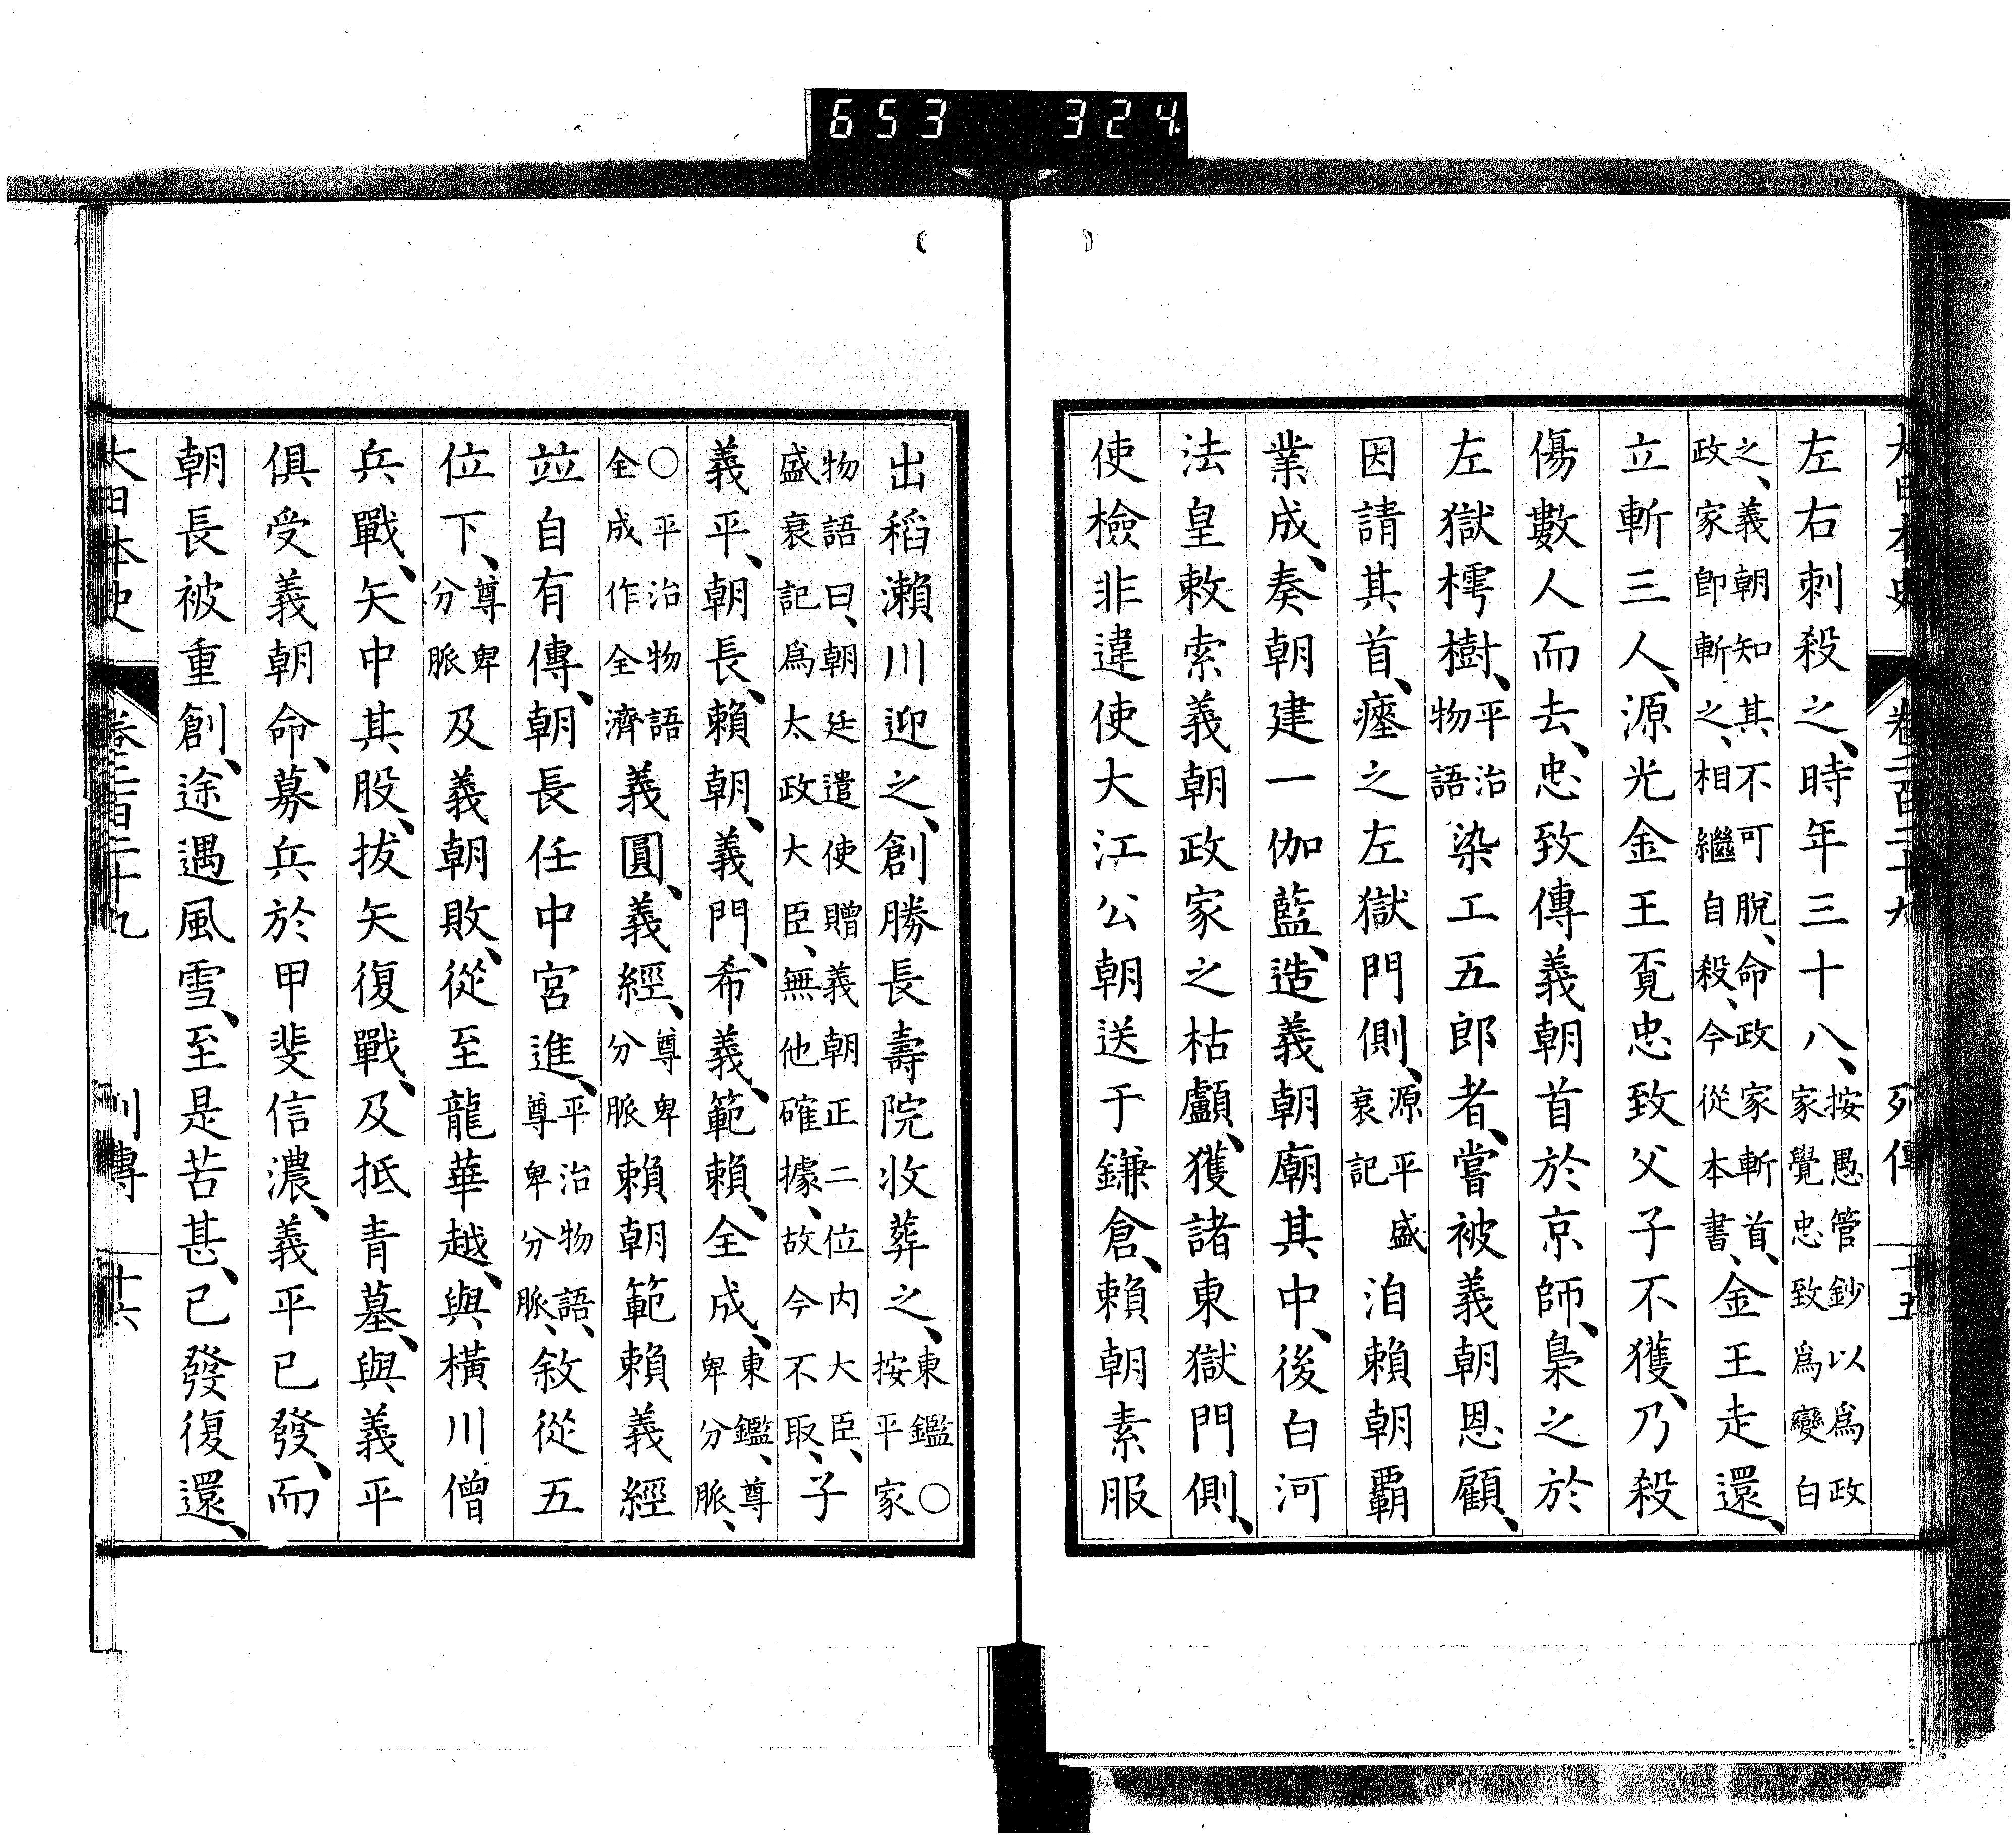 653 324
大日本史 卷二百二十九 列傳 十五
左右刺殺之、時年三十八、按愚管鈔以爲政家覺忠致爲變白
之、義朝知其不可脫、命政家斬首、政家卽斬之、相繼自殺、今從本書、金王走還、
立斬三人、源光金王覓忠致父子不獲、乃殺
傷數人而去、忠致傳義朝首於京師、梟之於
左獄樗樹、平治物語染工五郎者、嘗被義朝恩顧、
因請其首、瘞之左獄門側、源平盛衰記洎賴朝霸
業成、奏朝建一伽藍、造義朝廟其中、後白河
法皇敕索義朝政家之枯顱、獲諸東獄門側、
使檢非違使大江公朝送于鎌倉、賴朝素服
出稻瀨川迎之、創勝長壽院收葬之、東鑑○按平家
物語曰、朝廷遣使贈義朝正二位內大臣、盛衰記爲太政大臣、無他確據、故今不取、子
義平、朝長、賴朝、義門、希義、範賴、全成、東鑑、尊卑分脈、
○平治物語全成作全濟義圓、義經、尊卑分脈賴朝範賴義經
竝自有傳、朝長任中宮進、平治物語、尊卑分脈、敘從五
位下、尊卑分脈及義朝敗、從至龍華越、與橫川僧
兵戰、矢中其股、拔矢復戰、及抵青墓、與義平
俱受義朝命、募兵於甲斐信濃、義平已發、而
朝長被重創、途遇風雪、至是苦甚、已發復還、
大日本史 卷二百二十九 列傳 十六